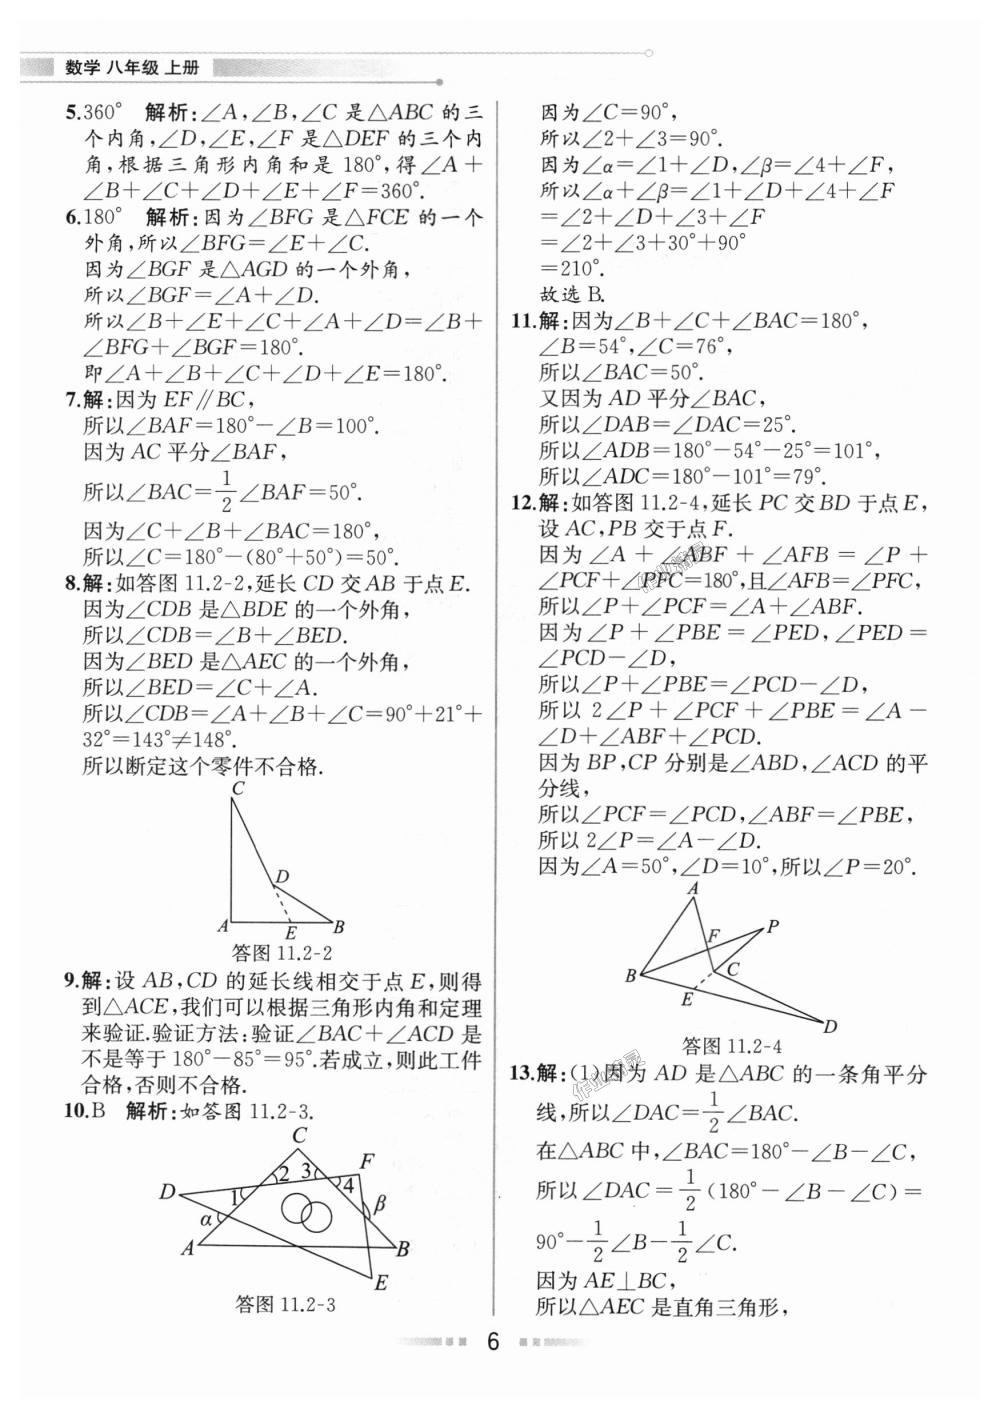 数学 八年级 上册
5.360° 解析:∠A,∠B,∠C 是△ABC 的三
个内角,∠D,∠E,∠F 是△DEF 的三个内
角,根据三角形内角和是 180°,得∠A+
∠B+∠C+∠D+∠E+∠F=360°.
6.180° 解析:因为∠BFG 是△FCE 的一个
外角,所以∠BFG=∠E+∠C.
因为∠BGF 是△AGD 的一个外角,
所以∠BGF=∠A+∠D.
所以∠B+∠E+∠C+∠A+∠D=∠B+
∠BFG+∠BGF=180°.
即∠A+∠B+∠C+∠D+∠E=180°.
7.解:因为 EF∥BC,
所以∠BAF=180°-∠B=100°.
因为 AC 平分∠BAF,
所以∠BAC=1/2∠BAF=50°.
因为∠C+∠B+∠BAC=180°,
所以∠C=180°-(80°+50°)=50°.
8.解:如答图 11.2-2,延长 CD 交 AB 于点 E.
因为∠CDB 是△BDE 的一个外角,
所以∠CDB=∠B+∠BED.
因为∠BED 是△AEC 的一个外角,
所以∠BED=∠C+∠A.
所以∠CDB=∠A+∠B+∠C=90°+21°+
32°=143°≠148°.
所以断定这个零件不合格.
C
D
A
E
B
答图 11.2-2
9.解:设 AB,CD 的延长线相交于点 E,则得
到△ACE,我们可以根据三角形内角和定理
来验证.验证方法:验证∠BAC+∠ACD 是
不是等于 180°-85°=95°.若成立,则此工件
合格,否则不合格.
10.B 解析:如答图 11.2-3.
C
F
2 3
4
D
1
β
α
A
B
E
答图 11.2-3
因为∠C=90°,
所以∠2+∠3=90°.
因为∠α=∠1+∠D,∠β=∠4+∠F,
所以∠α+∠β=∠1+∠D+∠4+∠F
=∠2+∠D+∠3+∠F
=∠2+∠3+30°+90°
=210°.
故选 B.
11.解:因为∠B+∠C+∠BAC=180°,
∠B=54°,∠C=76°,
所以∠BAC=50°.
又因为 AD 平分∠BAC,
所以∠DAB=∠DAC=25°.
所以∠ADB=180°-54°-25°=101°,
所以∠ADC=180°-101°=79°.
12.解:如答图 11.2-4,延长 PC 交 BD 于点 E,
设 AC,PB 交于点 F.
因为∠A+∠ABF+∠AFB=∠P+
∠PCF+∠PFC=180°,且∠AFB=∠PFC,
所以∠P+∠PCF=∠A+∠ABF.
因为∠P+∠PBE=∠PED,∠PED=
∠PCD-∠D,
所以∠P+∠PBE=∠PCD-∠D,
所以 2∠P+∠PCF+∠PBE=∠A-
∠D+∠ABF+∠PCD.
因为 BP,CP 分别是∠ABD,∠ACD 的平
分线,
所以∠PCF=∠PCD,∠ABF=∠PBE,
所以 2∠P=∠A-∠D.
因为∠A=50°,∠D=10°,所以∠P=20°.
A
P
F
B
C
E
D
答图 11.2-4
13.解:(1)因为 AD 是△ABC 的一条角平分
线,所以∠DAC=1/2∠BAC.
在△ABC 中,∠BAC=180°-∠B-∠C,
所以∠DAC=1/2(180°-∠B-∠C)=
90°-1/2∠B-1/2∠C.
因为 AE⊥BC,
所以△AEC 是直角三角形,
作业精灵
作业精灵
6